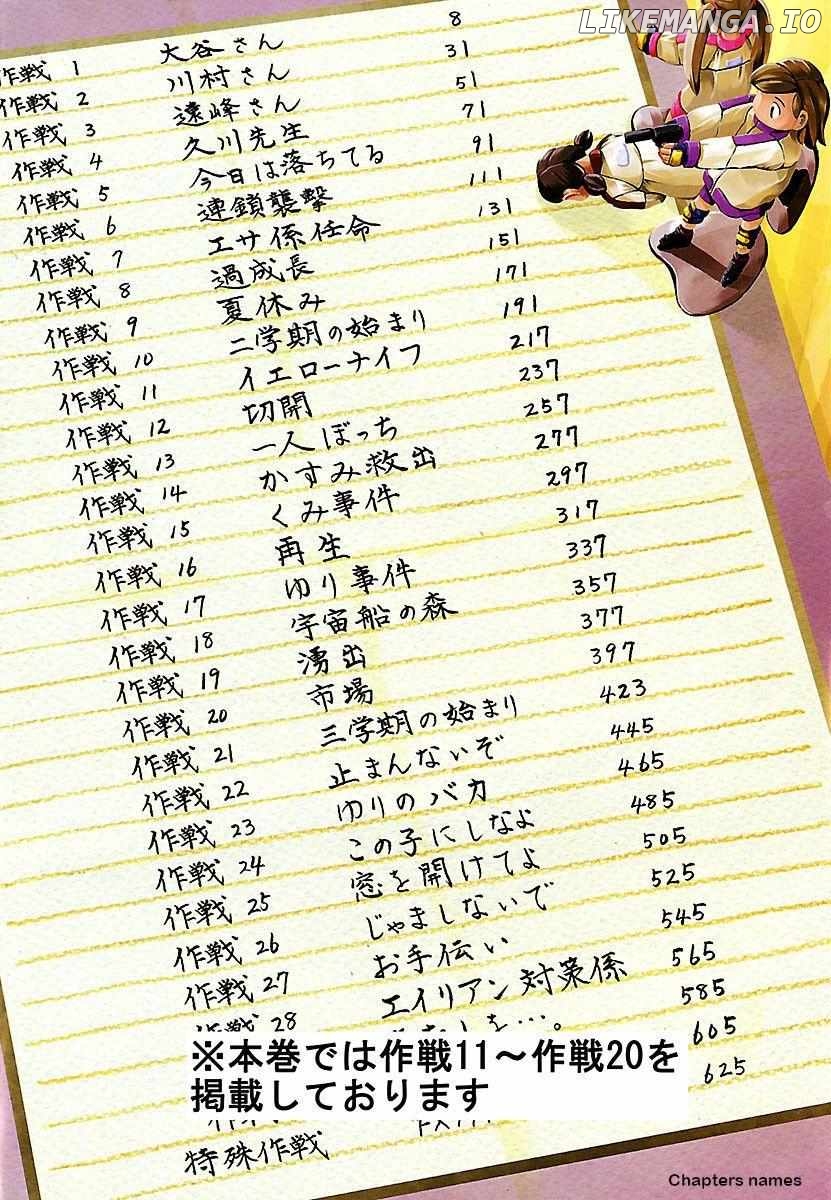 LIKEMANGA.IO
作戦 1 大谷さん 8
作戦 2 川村さん 31
作戦 3 遠峰さん 51
作戦 4 久川先生 71
作戦 5 今日は落ちてる 91
作戦 6 連鎖襲撃 111
作戦 7 エサ係任命 131
作戦 8 過成長 151
作戦 9 夏休み 171
作戦 10 二学期の始まり 191
作戦 11 イエローナイフ 217
作戦 12 切開 237
作戦 13 一人ぼっち 257
作戦 14 かすみ救出 277
作戦 15 くみ事件 297
作戦 16 再生 317
作戦 17 ゆり事件 337
作戦 18 宇宙船の森 357
作戦 19 湧出 377
作戦 20 市場 397
作戦 21 三学期の始まり 423
作戦 22 止まんないぞ 445
作戦 23 ゆりのバカ 465
作戦 24 この子にしなよ 485
作戦 25 窓を開けてよ 505
作戦 26 じゃましないで 525
作戦 27 お手伝い 545
作戦 28 エイリアン対策係 565
585
605
625
※本巻では作戦11～作戦20を
掲載しております
特殊作戦
Chapters names